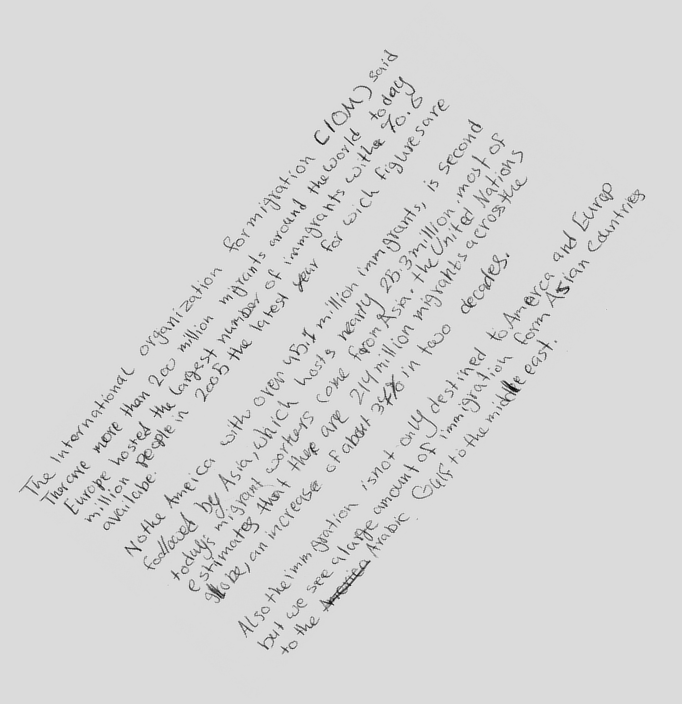 The International organization for migration (IOM) said
Therare more than 200 million migrants around the world today
Europe hosted the largest number of immigrants withe 70.6
million people in 2005 the latest year for wich figures are
available.
Nothe America with over 45.1 million immigrants, is second
foollowed by Asia, which hosts nearly 25.3 million. most of
today's migrant workers come from Asia. the United Nations
estimates that there are 214 million migrants across the
globe, an increase of about 37% in two decades.
Also the immigration is not only destined to America and Europ
but we see a large amount of immigration form Asian countries
to the Arabic Gulf to the middle east.